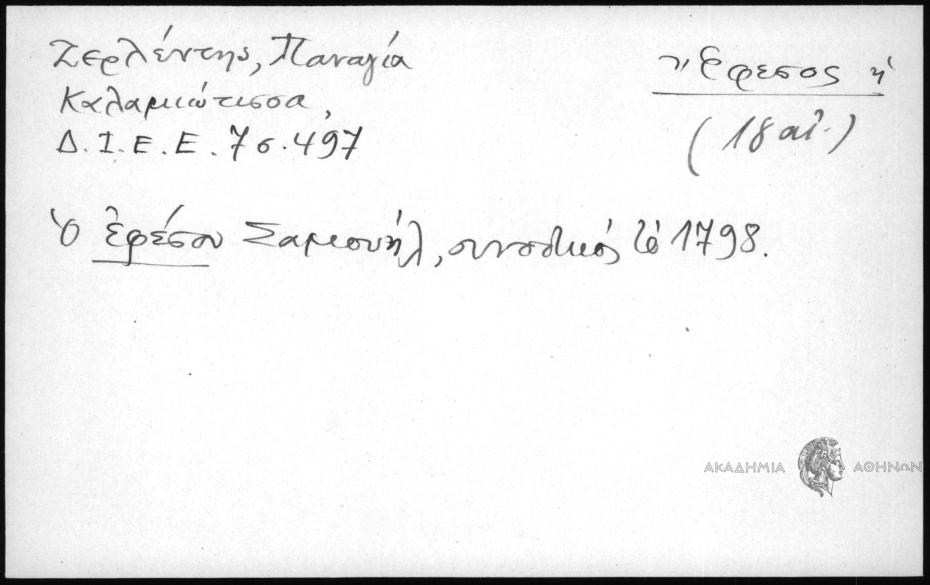 Ζερλέντης, Παναγία
Καλαμιώτισσα,
Δ.Ι.Ε.Ε. 7 σ. 497
Ἔφεσος ἡ
(18 αἰ.)
Ὁ Ἐφέσου Σαμουήλ, συνοδικός τὸ 1798.
ΑΚΑΔΗΜΙΑ ΑΘΗΝΩΝ